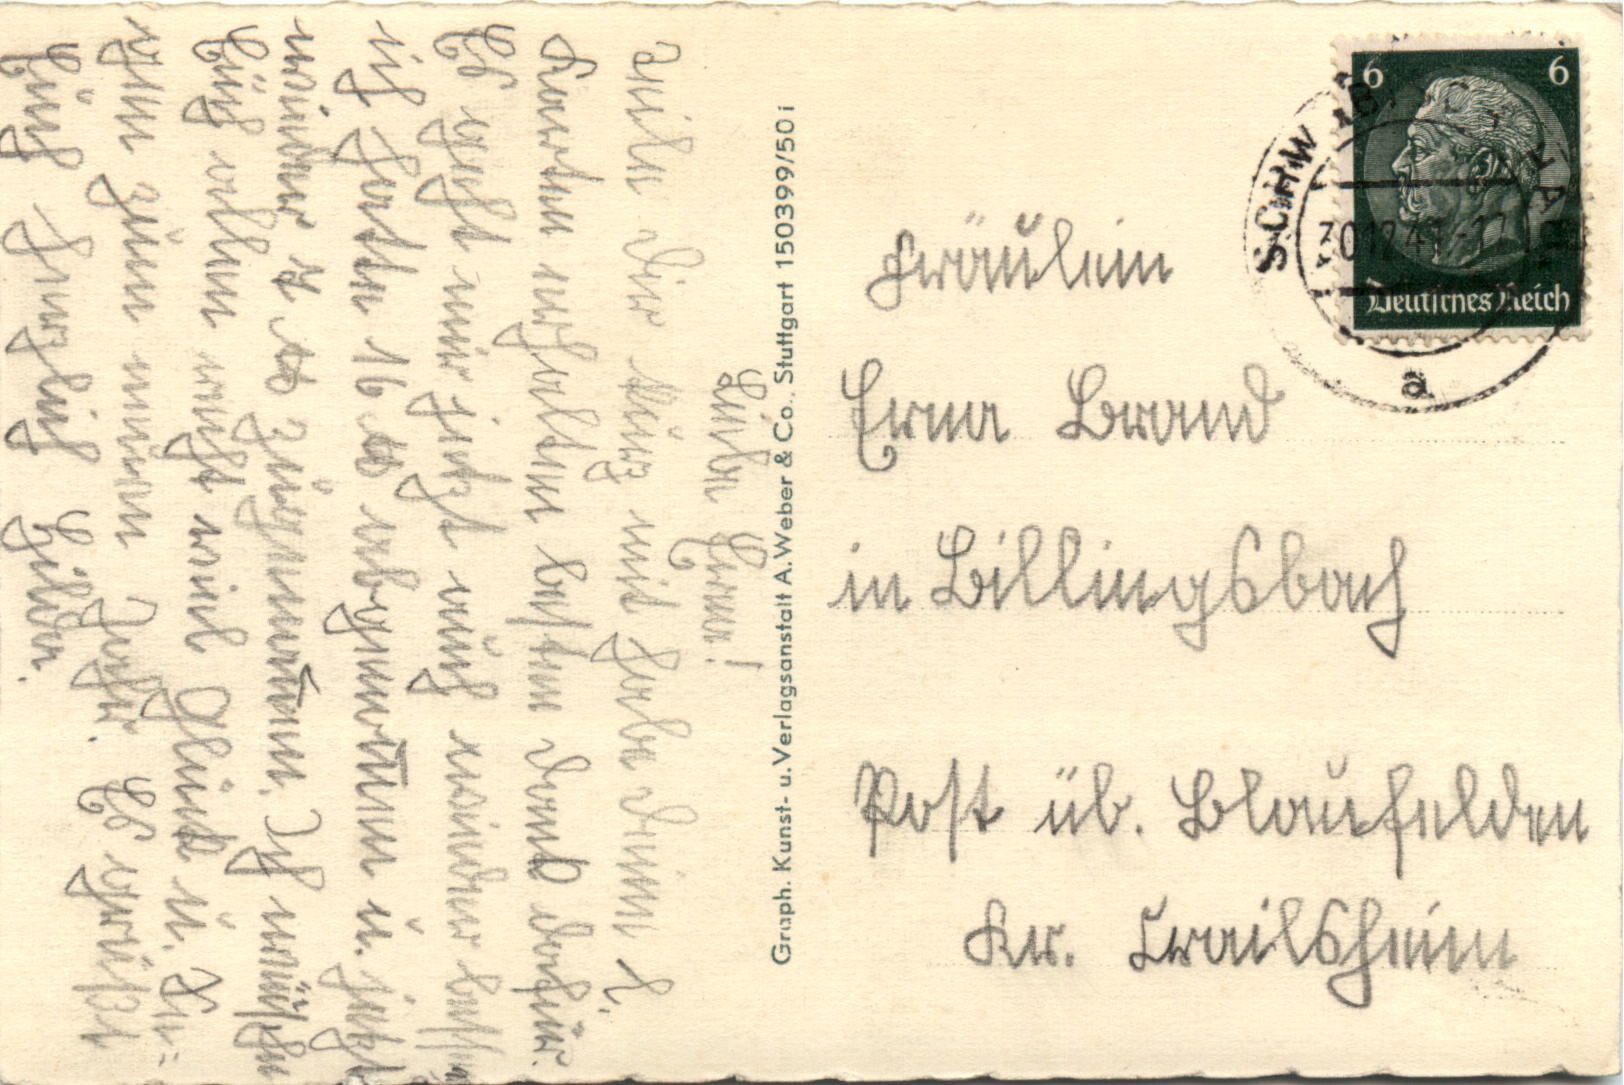 Liebe Erna!
Teile Dir kurz mit habe deine l.
Karten erhalten besten Dank dafür.
Es geht mir jetzt auch wieder besser
ich hatte 16 ℔ abgenommen u. jetzt
wieder 2 ℔ zugenommen. Ich wünsche
Euch allen recht viel Glück u. Se-
gen zum neuen Jahr. Es grüßt
Euch herzlich Hilda.
Graph. Kunst- u. Verlagsanstalt A. Weber & Co., Stuttgart 150399/50 i
6 6
Deutsches Reich
SCHWÄB.
30.12.41.-17
a
Fräulein
Erna Brand
in Billingsbach
Post üb. Blaufelden
Kr. Crailsheim